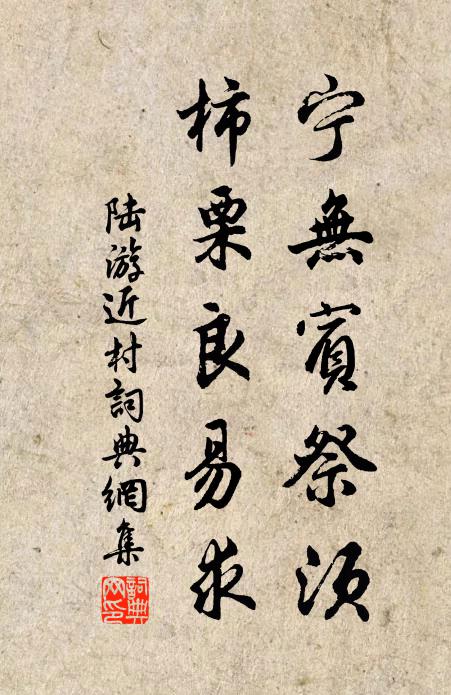 宁無賓祭須
柿栗良易求
陆游近村詞典網集
詞典网印